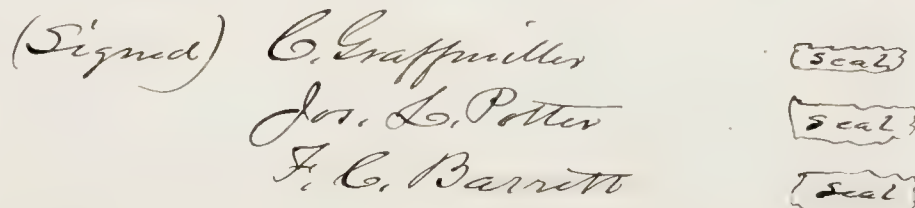 (Signed) C. Graffmiller Seal
Jos. L. Potter Seal
F. C. Barrett Seal